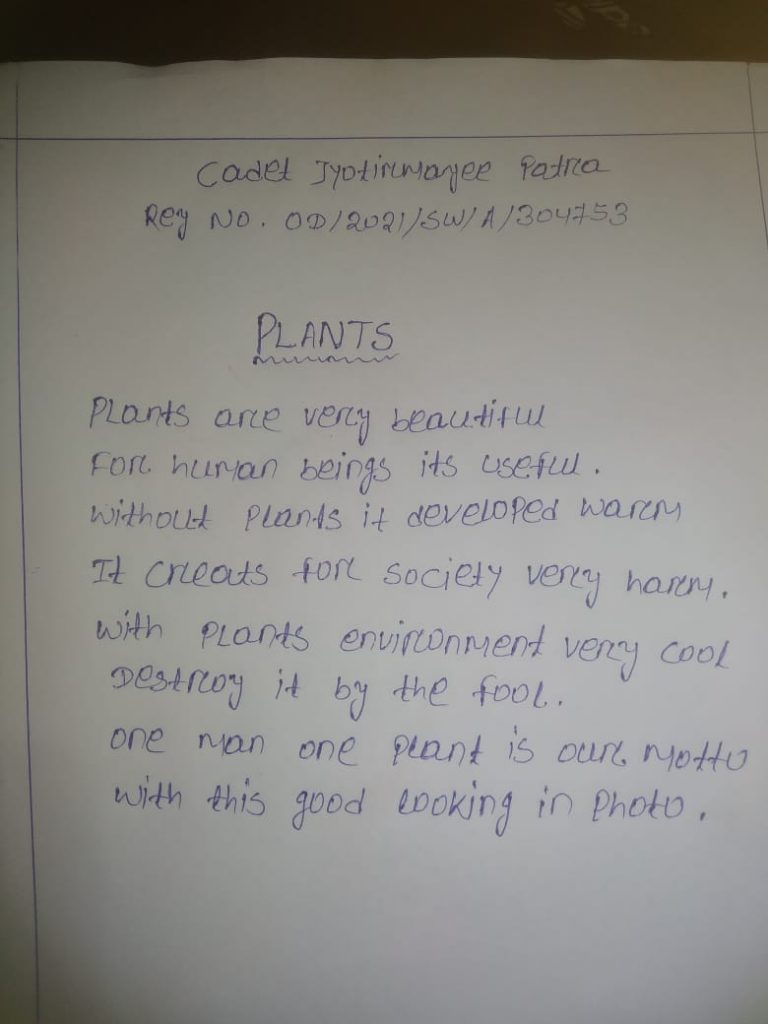 Cadet Jyotirmayee Patra
Reg No. OD/2021/SW/A/304753
PLANTS
Plants are very beautiful
For human beings its useful.
Without plants it developed warm
It creats for society very harm.
With plants environment very cool
Destroy it by the fool.
One man one plant is our motto
With this good looking in photo.